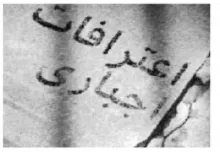 اعترافات
اجباری